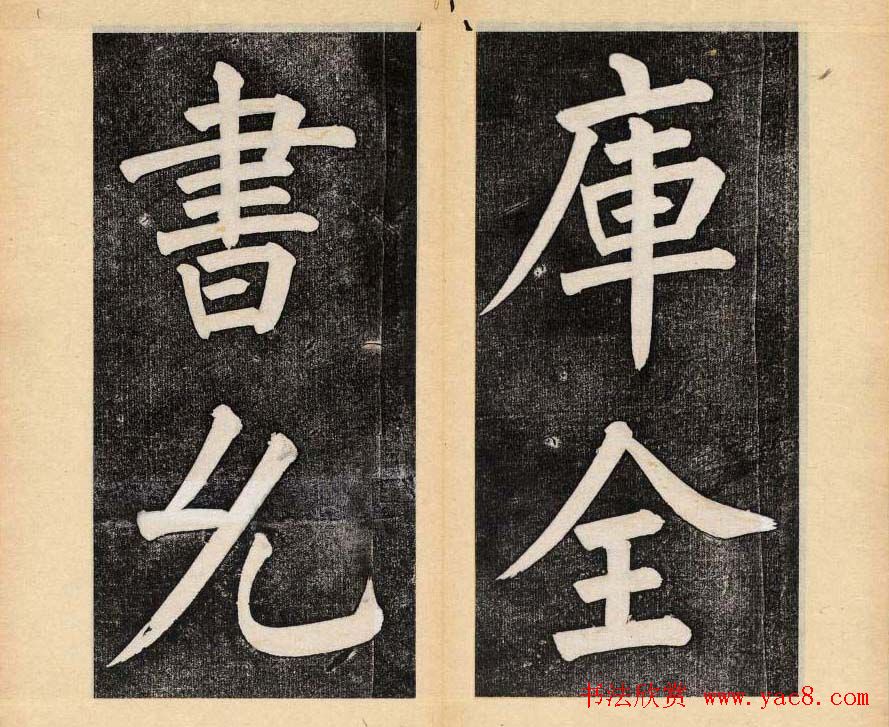 庫全
書允
书法欣赏 www.yac8.com